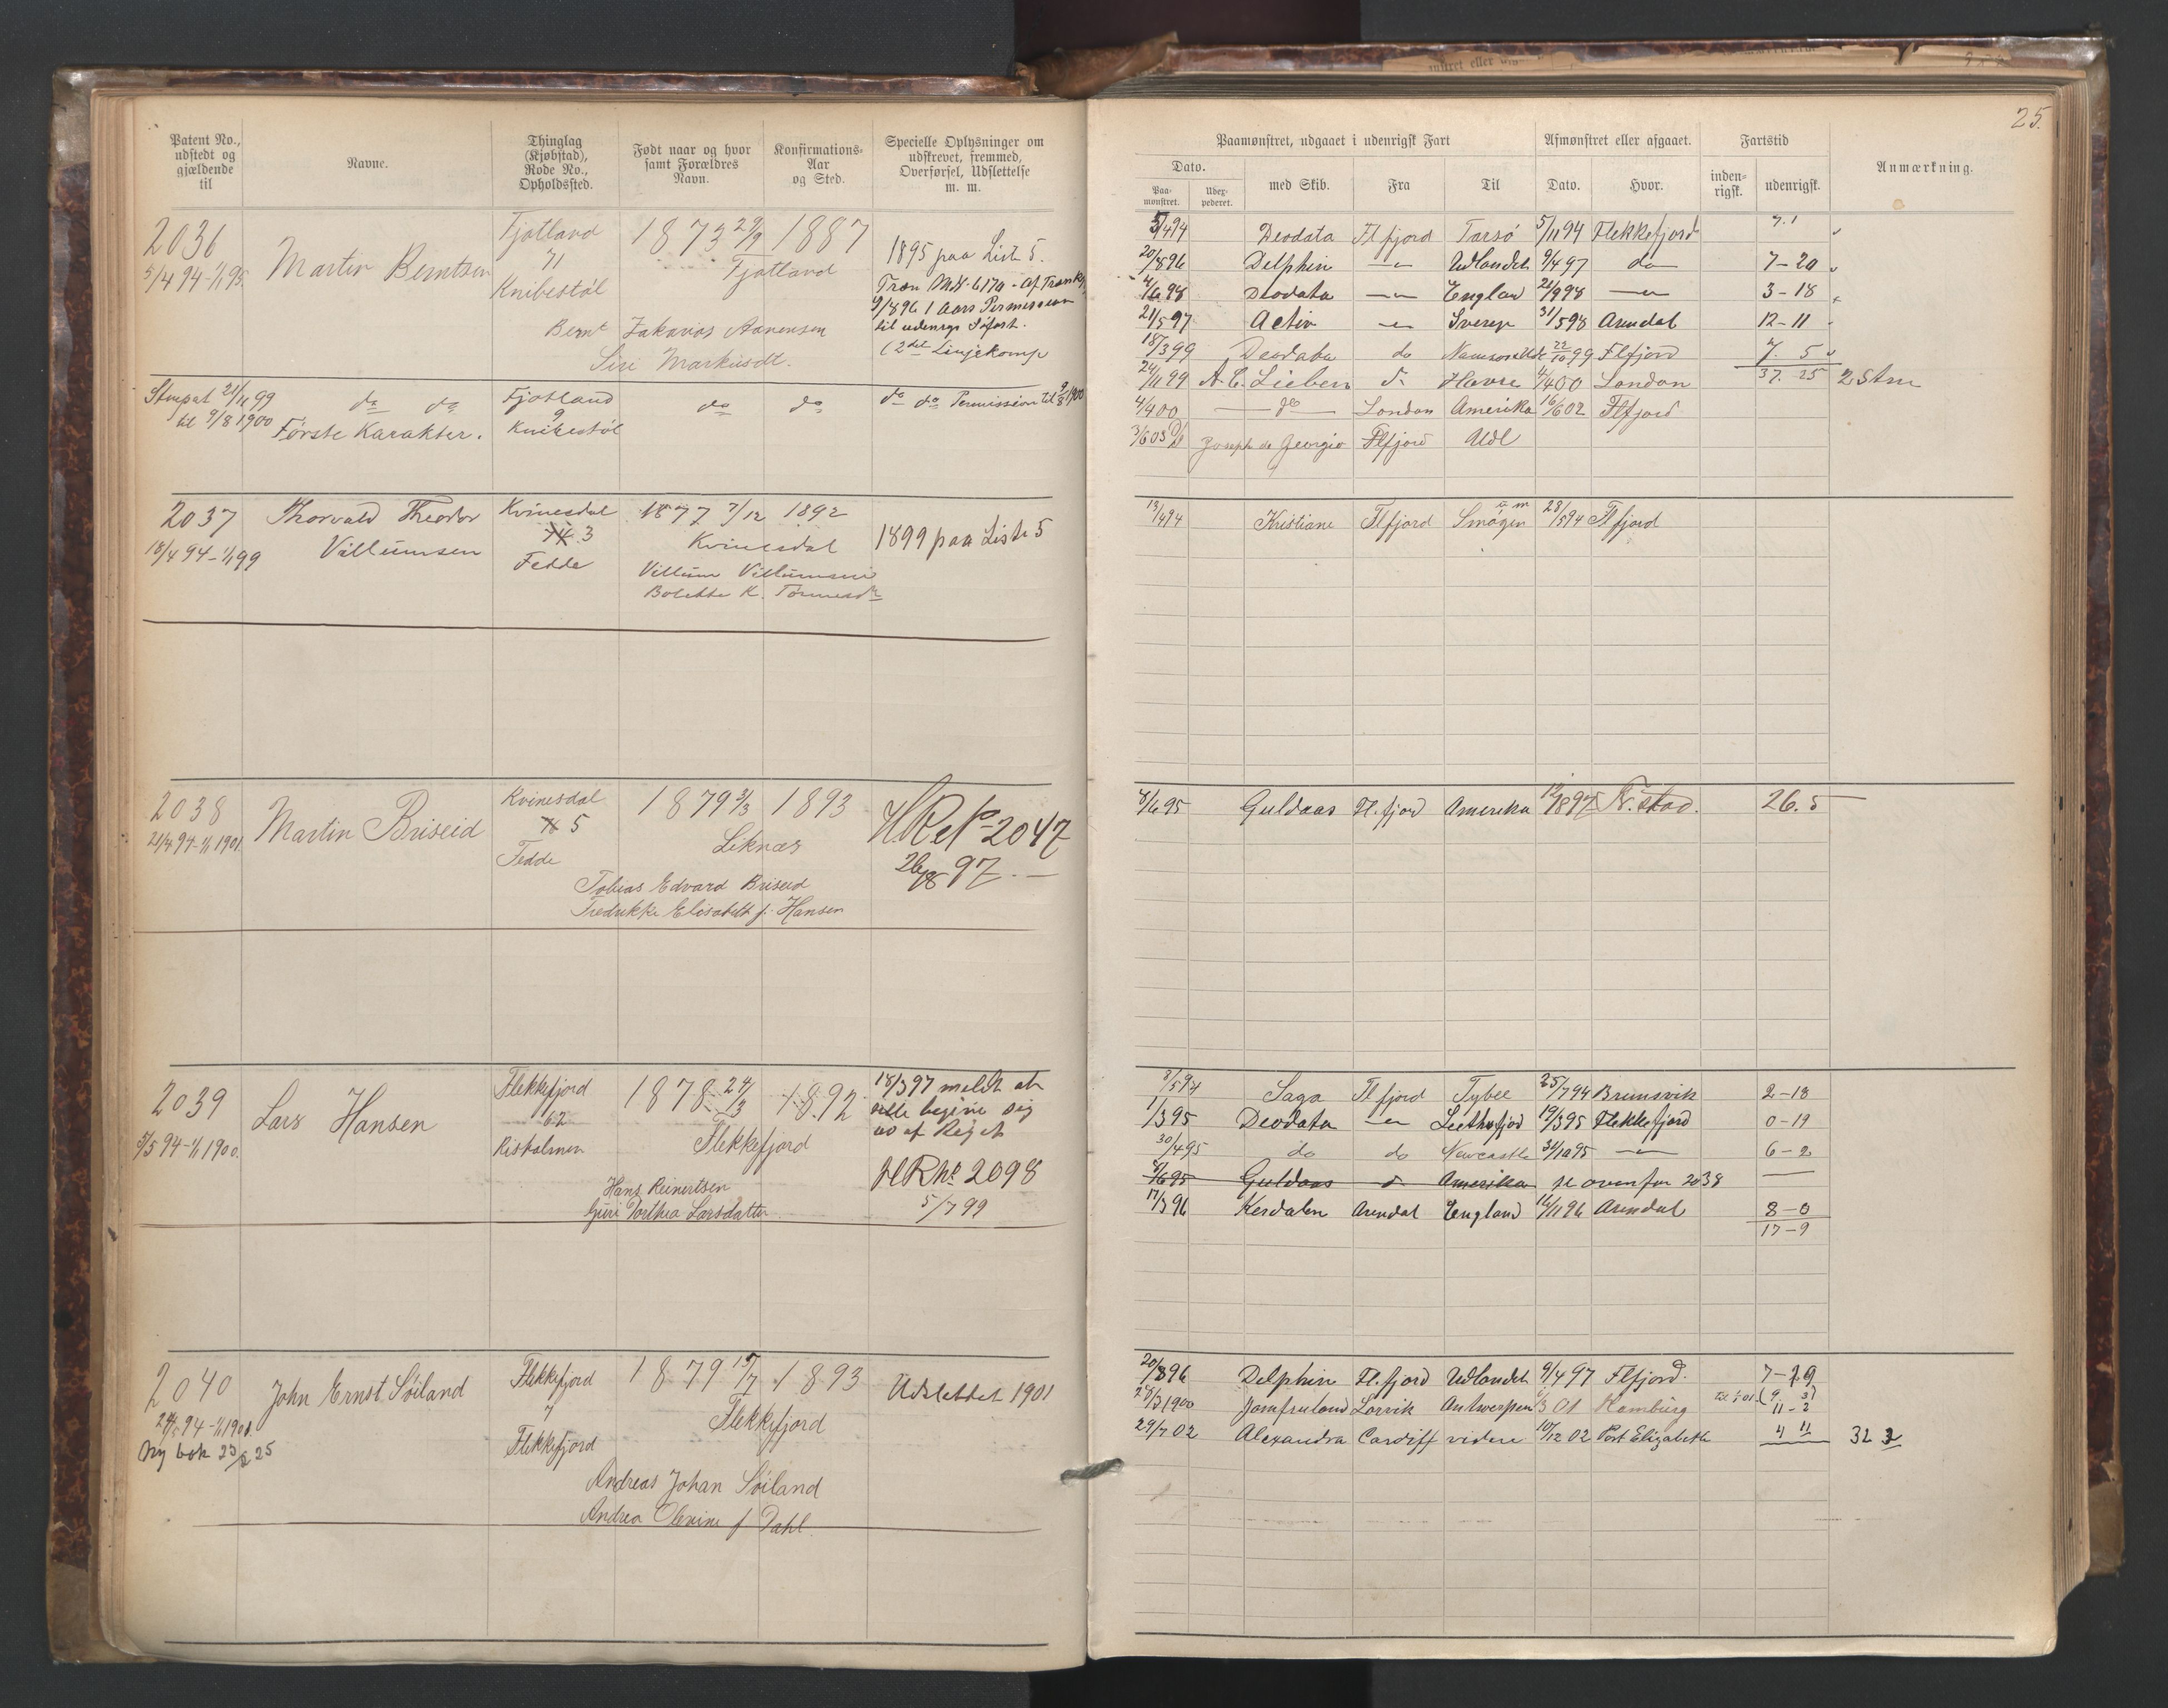 25.
Patent No., udstedt og gjældende til
Navne.
Thinglag (Kjøbstad), Rode No., Opholdssted.
Født naar og hvor samt Forældres Navn.
Konfirmations-Aar og Sted.
Specielle Oplysninger om udskrevet, fremmed, Overførsel, Udslettelse m. m.
Paamønstret, udgaaet i udenrigsk Fart
Afmønstret eller afgaaet.
Fartstid
Anmærkning.
Dato.
Paa-mønstret.
Uber-pederet.
med Skib.
Fra
Til
Dato.
Hvor.
inden-rigsk.
udenrigsk.
2036
5/4 94 - 1/1 95
Martin Berntsen
Fjotland
71
Knibestøl
1873 29/9 1887
Fjotland
Bernt Zakarias Aanensen
Siri Markusdt.
1895 paa Liste 5.
9/8 96 1 Aars Permission
til udenrgs Søfart.
(2det Linjekomp
5/4 94 Deodata Fl fjord Torsø 5/11 94 Flekkefjord 7.1
20/8 96 Delphin — Udlandet 9/4 97 do 7-20
4/6 98 Deodata — England 21/9 98 — 3-18
21/5 97 Activ — Sverige 31/5 98 Arendal 12-11
18/3 99 Deodata do 22/10 99 Flfjord 7. 5
37. 25 2 Stm
24/11 99 A. C. Lieben do Havre 4/4 00 London
4/4 00 — do — London Amerika 16/6 02 Flfjord
3/6 03 Joseph de Georgio Flfjord Udl
Stempel 21/11 99
til 9/8 1900
do do
Første Karakter.
Fjotland
9
Knibestøl
do do
do do Permission til 9/8 1900
2037
18/4 94 - 1/1 99
Thorvald Theodor
Villumsen
Kvinesdal
3
Fedde
1877 7/12 1892
Kvinesdal
Villum Villumsen
Bolette K. Tønnesdt
1899 paa Liste 5
19/4 94 Kristiane Flfjord Smøgen 28/5 94 Flfjord
2038
21/4 94 - 1/1 1901
Martin Briseid
Kvinesdal
5
Fedde
1879 3/3 1893
Liknæs
Tobias Edvard Briseid
Fredrikke Elisabeth f. Hansen
H.R. No 2047
26/8 97. —
8/6 95 Guldaas Fl. fjord Amerika 12/8 97 Fr. stad. 26. 5
2039
5/5 94 - 1/1 1900.
Lars Hansen
Flekkefjord
62
Risholmen
1878 24/3 1892
Flekkefjord
Hans Reinertsen
Guri Torthea Larsdatter
18/3 97 meldt at
ville begive sig
ud af Riget
HR No 2098
5/7 99
8/5 94 Saga Fl fjord Tybee 25/7 94 Brunsvik 2-18
1/3 95 Deodata — Leithsfjord 19/3 95 Flekkefjord 0-19
30/4 95 do do Newcastle 31/10 95 — 6-2
8/6 95 Guldaas do Amerika se ovenfor 2038 —
17/3 96 Kesdalen Arendal England 16/11 96 Arendal 8-0
17-9
2040
24/5 94 - 1/1 1901.
Ny bok 23/2 25
John Ernst Søiland
Flekkefjord
7
Flekkefjord
1879 15/7 1893
Flekkefjord
Andreas Johan Søiland
Andrea Olevine f Dahl
Udslettet 1901
20/8 96 Delphin Fl. fjord Udlandet 9/4 97 Flfjord. 7-19
28/3 1900 Jomfruland Larvik Antwerpen /3 01 Hamburg (9. 3)
11-2
29/7 02 Alexandra Cardiff videre 10/12 02 Port Elizabeth 4 11 32 2